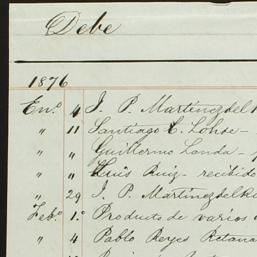 Debe
1876
En.º 4 J. P. Martinez del
" 11 Santiago C. Lohse -
" " Guillermo Landa -
" " Luis Ruiz - recibido
" 29 J. P. Martinez del Rio
Feb.º 1.º Producto de varios
" 4 Pablo Reyes Retana